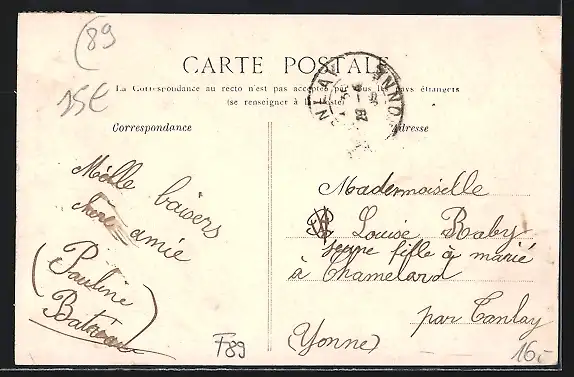 (89
15€
CARTE POSTALE
La Correspondance au recto n'est pas acceptée par tous les pays étrangers
(se renseigner à la Poste)
TANLAY
YONNE
Correspondance
Adresse
Mille baisers
amie
(Pauline
Mademoiselle
Louise Raby
jeune fille à marié
à Chamelard
par Tanlay
(Yonne)
F89
16-